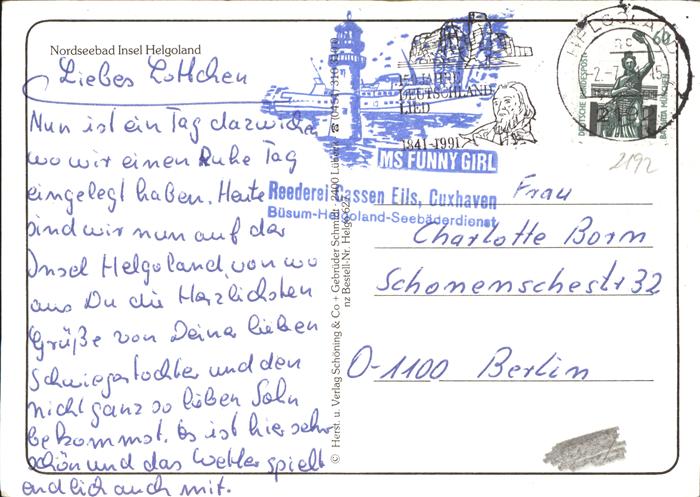 Nordseebad Insel Helgoland
Liebes Lottchen
Nun ist ein Tag dazwischen
wo wir einen Ruhe Tag
eingelegt haben. Heute
sind wir nun auf der
Insel Helgoland, von wo
aus Du die Herzlichsten
Grüße von Deiner lieben
Schwiegertochter und den
nicht ganz so lieben Sohn
bekommst. Es ist hier sehr
schön und das Wetter spielt
endlich auch mit.
© Herst. u. Verlag Schöning & Co + Gebrüder Schmidt, 2400 Lübeck
Bestell-Nr. Helgo
150 JAHRE
DEUTSCHLAND
LIED
1841-1991
MS FUNNY GIRL
Reederei Cassen Eils, Cuxhaven
Büsum-Helgoland-Seebäderdienst
HELGOLAND
60
DEUTSCHE BUNDESPOST
BAVARIA MÜNCHEN
2192
Frau
Charlotte Born
Schonenschestr 32
O-1100 Berlin